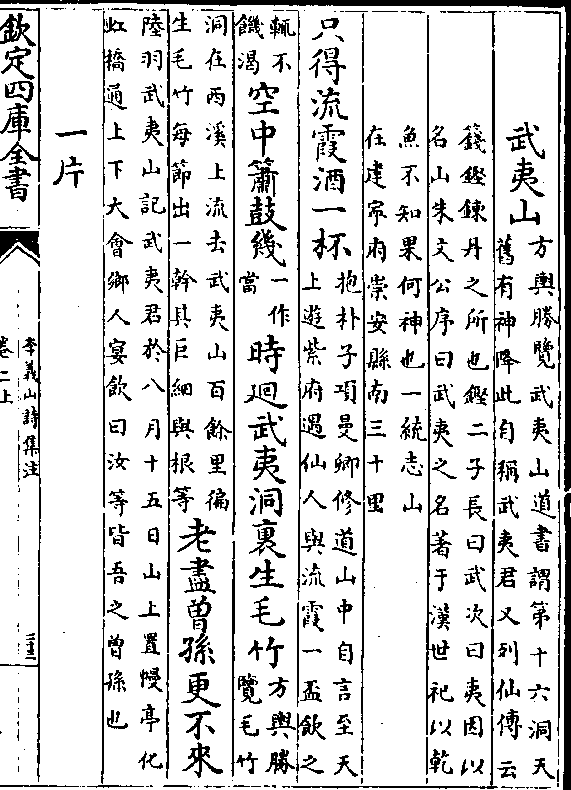 武夷山
方輿勝覽武夷山道書謂第十六洞天
舊有神降此自稱武夷君又列仙傳云
籛鏗鍊丹之所也鏗二子長曰武次曰夷因以
名山朱文公序曰武夷之名著于漢世祀以乾
魚不知果何神也一統志山
在建寕府崇安縣南三十里
只得流霞酒一杯
抱朴子項曼卿修道山中自言至天
上遊紫府遇仙人與流霞一盃飲之
輒不
饑渴
空中簫鼓幾
一作
當
時廻武夷洞裏生毛竹
方輿勝
覽毛竹
洞在西溪上流去武夷山百餘里徧
生毛竹每節出一幹其巨細與根等
老盡曾孫更不來
陸羽武夷山記武夷君於八月十五日山上置幔亭化
虹橋通上下大會鄉人宴飲曰汝等皆吾之曾孫也
一片
欽定四庫全書
李義山詩集注
卷二上